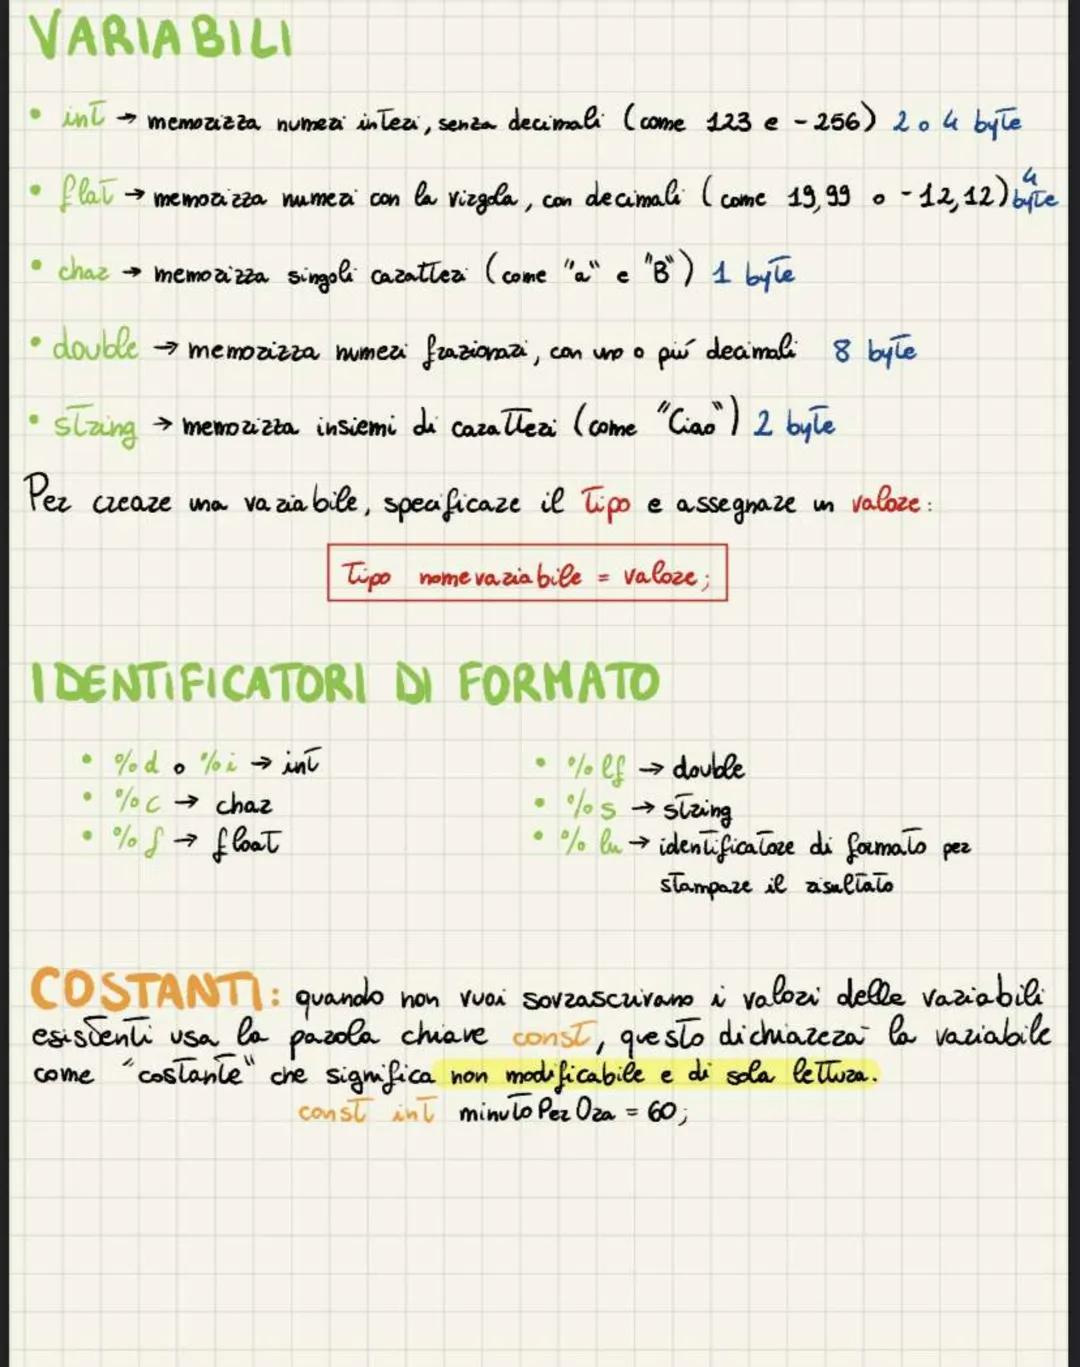 VARIABILI
• int → memorizza numeri interi, senza decimali (come 123 e -256) 2 o 4 byte
• flat → memorizza numeri con la virgola, con decimali (come 19,99 o -12,12) 4 byte
• char → memorizza singoli caratteri (come "a" e "B") 1 byte
• double → memorizza numeri frazionari, con uno o più decimali 8 byte
• string → memorizza insiemi di caratteri (come "Ciao") 2 byte
Per creare una variabile, specificare il tipo e assegnare un valore:
Tipo nomevariabile = valore;
IDENTIFICATORI DI FORMATO
• %d o %i → int
• %c → char
• %f → float
• %lf → double
• %s → string
• %lu → identificatore di formato per
stampare il risultato
COSTANTI: quando non vuoi sovrascrivano i valori delle variabili
esistenti usa la parola chiave const, questo dichiarerà la variabile
come "costante" che significa non modificabile e di sola lettura.
const int minutoPerOra = 60;